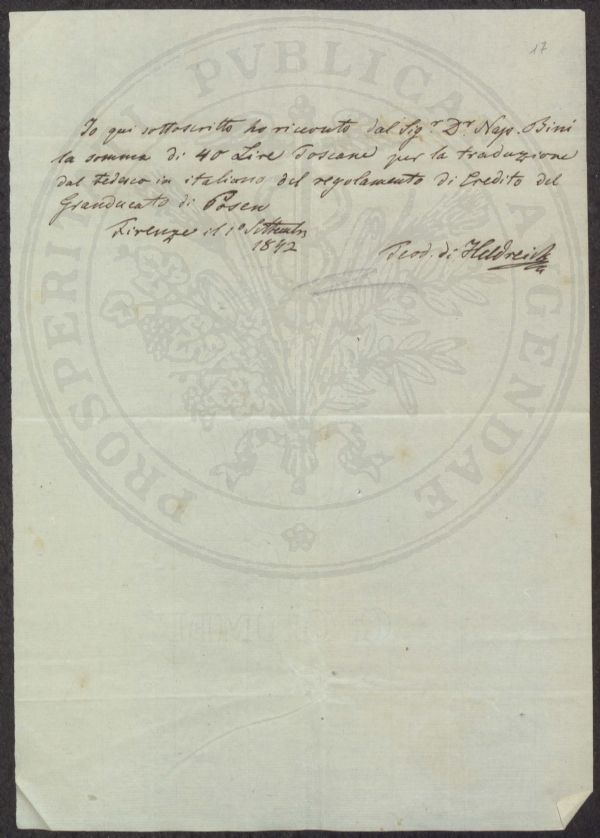 17
Io qui sottoscritto ho ricevuto dal Sigr. Dr. Nap. Bini
la somma di 40 Lire Toscane per la traduzione
dal tedesco in italiano del regolamento di Credito del
Granducato di Posen
Firenze il 1o Settembre
1842
Teod. di Heldreich
PROSPERITATI PUBLICAE AUGENDAE